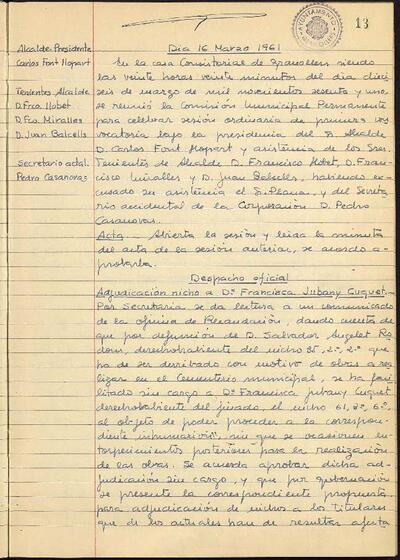 AYUNTAMIENTO
13
Alcalde-Presidente
Carlos Font Llopart
Tenientes Alcalde
D. Fco. Llobet
D. Fco. Miralles
D. Juan Balcells
Secretario actal.
Pedro Casanovas
Dia 16 Marzo 1961
En la casa Consistorial de Granollers siendo
las veinte horas veinte minutos del día dieci
séis de marzo de mil novecientos sesenta y uno,
se reunió la Comisión Municipal Permanente
para celebrar sesión ordinaria de primera con
vocatoria bajo la presidencia del Sr Alcalde
D. Carlos Font Llopart y asistencia de los Sres.
Tenientes de Alcalde D. Francisco Llobet, D. Fran-
cisco Miralles y D. Juan Balcells, habiendo ex-
cusado su asistencia el S. Plana, y del Secreta
rio accidental de la Corporación D. Pedro
Casanovas.
Acta.- Abierta la sesión y leida la minuta
del acta de la sesión anterior, se acordó a-
probarla.
Despacho oficial
Adjudicación nicho a Dª Francisca Jubany Cuquet.-
Por Secretaria se da lectura a un comunicado
de la oficina de Recaudación, dando cuenta de
que por defunción de D. Salvador Augelet Ra
dom, derechohabiente del nicho 35, 2ª, 2ª que
ha de ser derribado con motivo de obras a rea
lizar en el Cementerio municipal, se ha faci
litado sin cargo a Dª Francisca Jubany Cuquet
derechohabiente del finado, el nicho 61, 8ª, 6ª
al objeto de poder proceder a la correspon-
diente inhumación, sin que se ocasionen en-
torpecimientos posteriores para la realización
de las obras. Se acuerda aprobar dicha ad-
judicación sin cargo, y que por gobernación
se presente la correspondiente propuesta
para adjudicación de nichos a los Titulares
que de los actuales han de resultar afecta